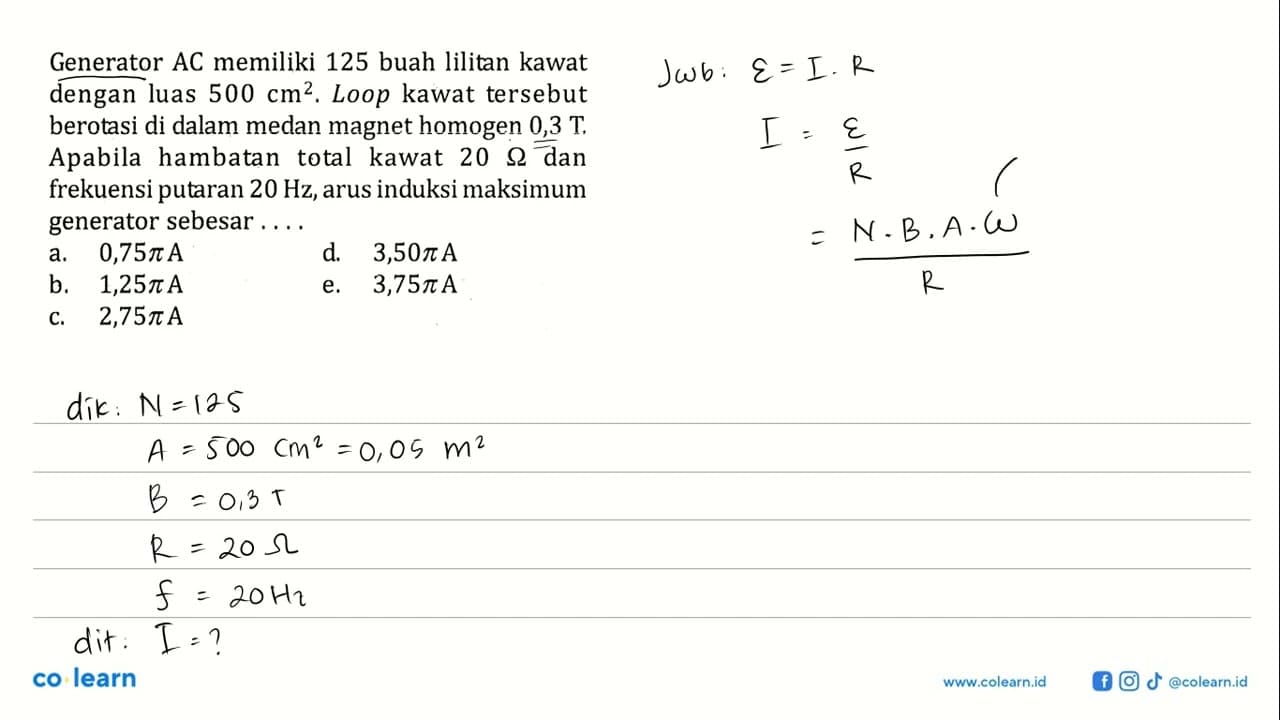 Generator AC memiliki 125 buah lilitan kawat
dengan luas 500 cm². Loop kawat tersebut
berotasi di dalam medan magnet homogen 0,3 T.
Apabila hambatan total kawat 20 Ω dan
frekuensi putaran 20 Hz, arus induksi maksimum
generator sebesar . . . .
a. 0,75π A d. 3,50π A
b. 1,25π A e. 3,75π A
c. 2,75π A
Jwb: ε = I . R
I = ε / R
= N . B . A . ω / R
dik: N = 125
A = 500 cm² = 0,05 m²
B = 0,3 T
R = 20 Ω
f = 20 Hz
dit: I = ?
co learn
www.colearn.id
@colearn.id